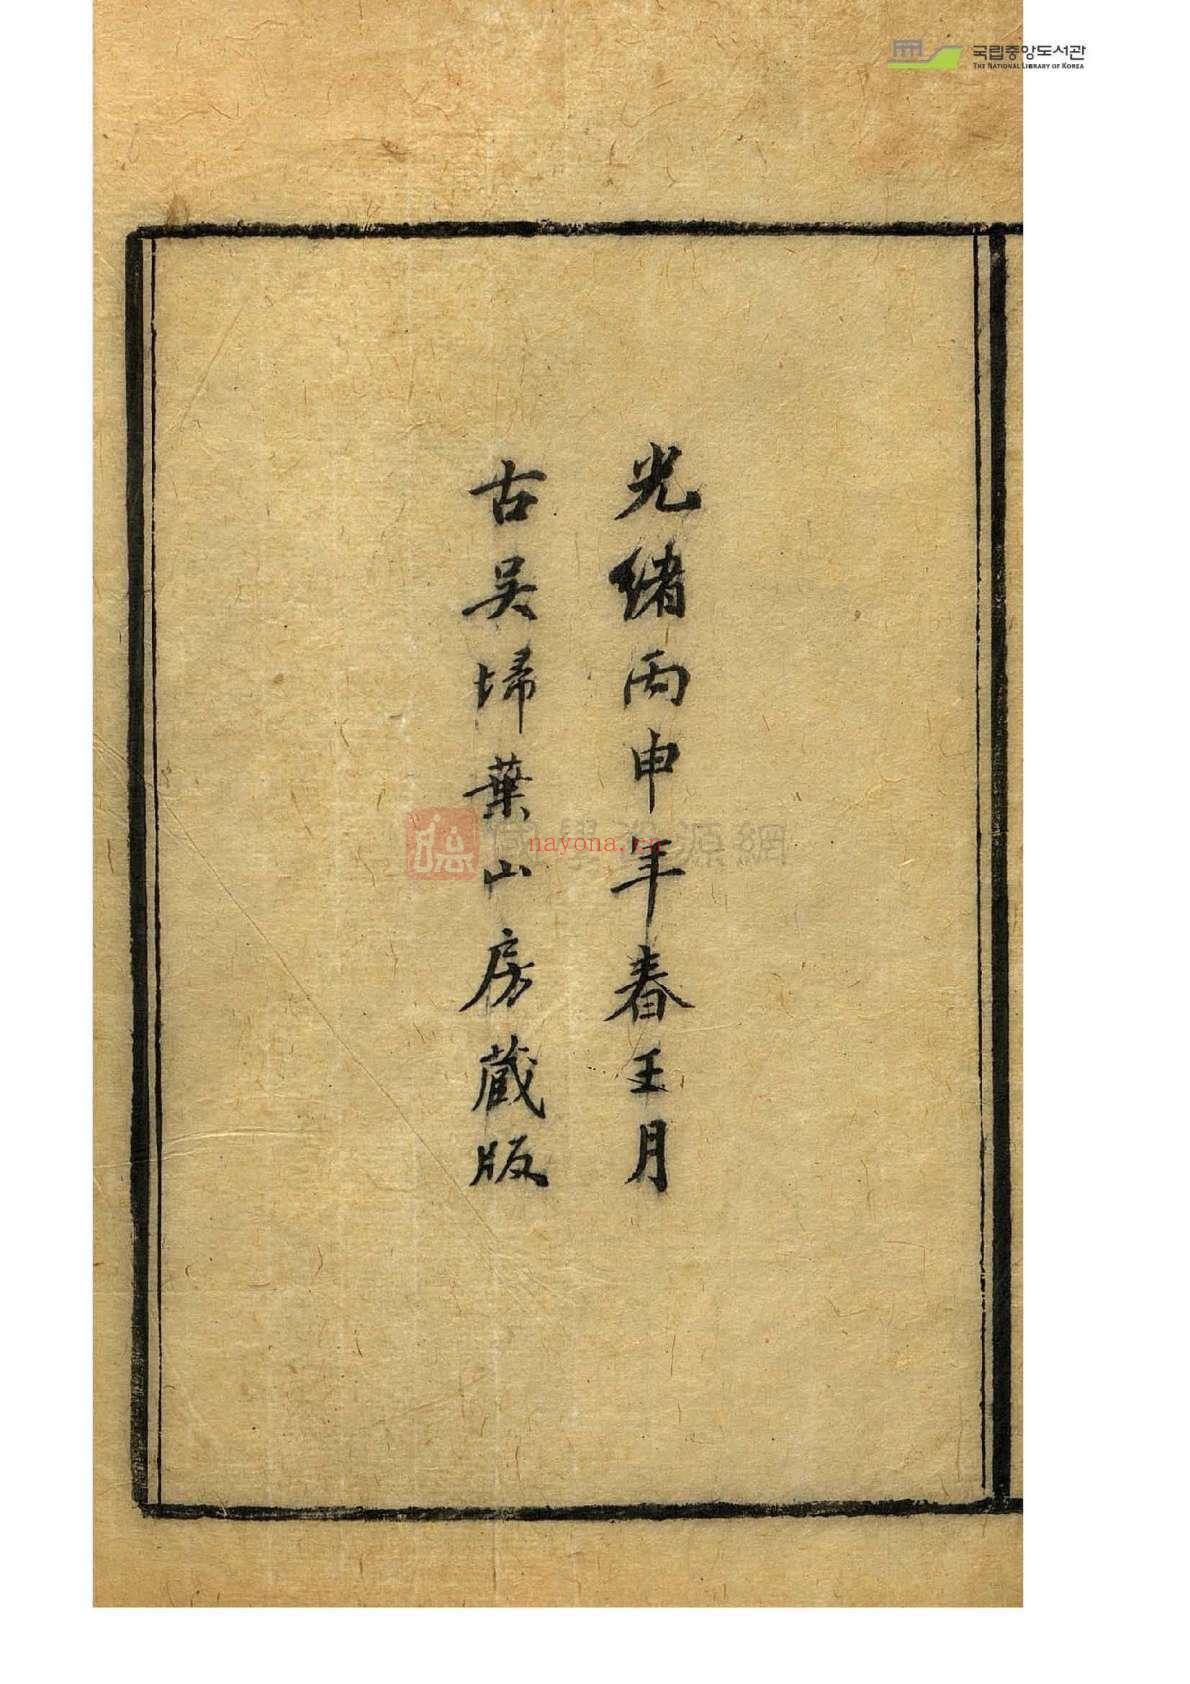 국립중앙도서관
THE NATIONAL LIBRARY OF KOREA
光緒丙申年春王月
古吴埽葉山房藏版
nayona.cn
源網